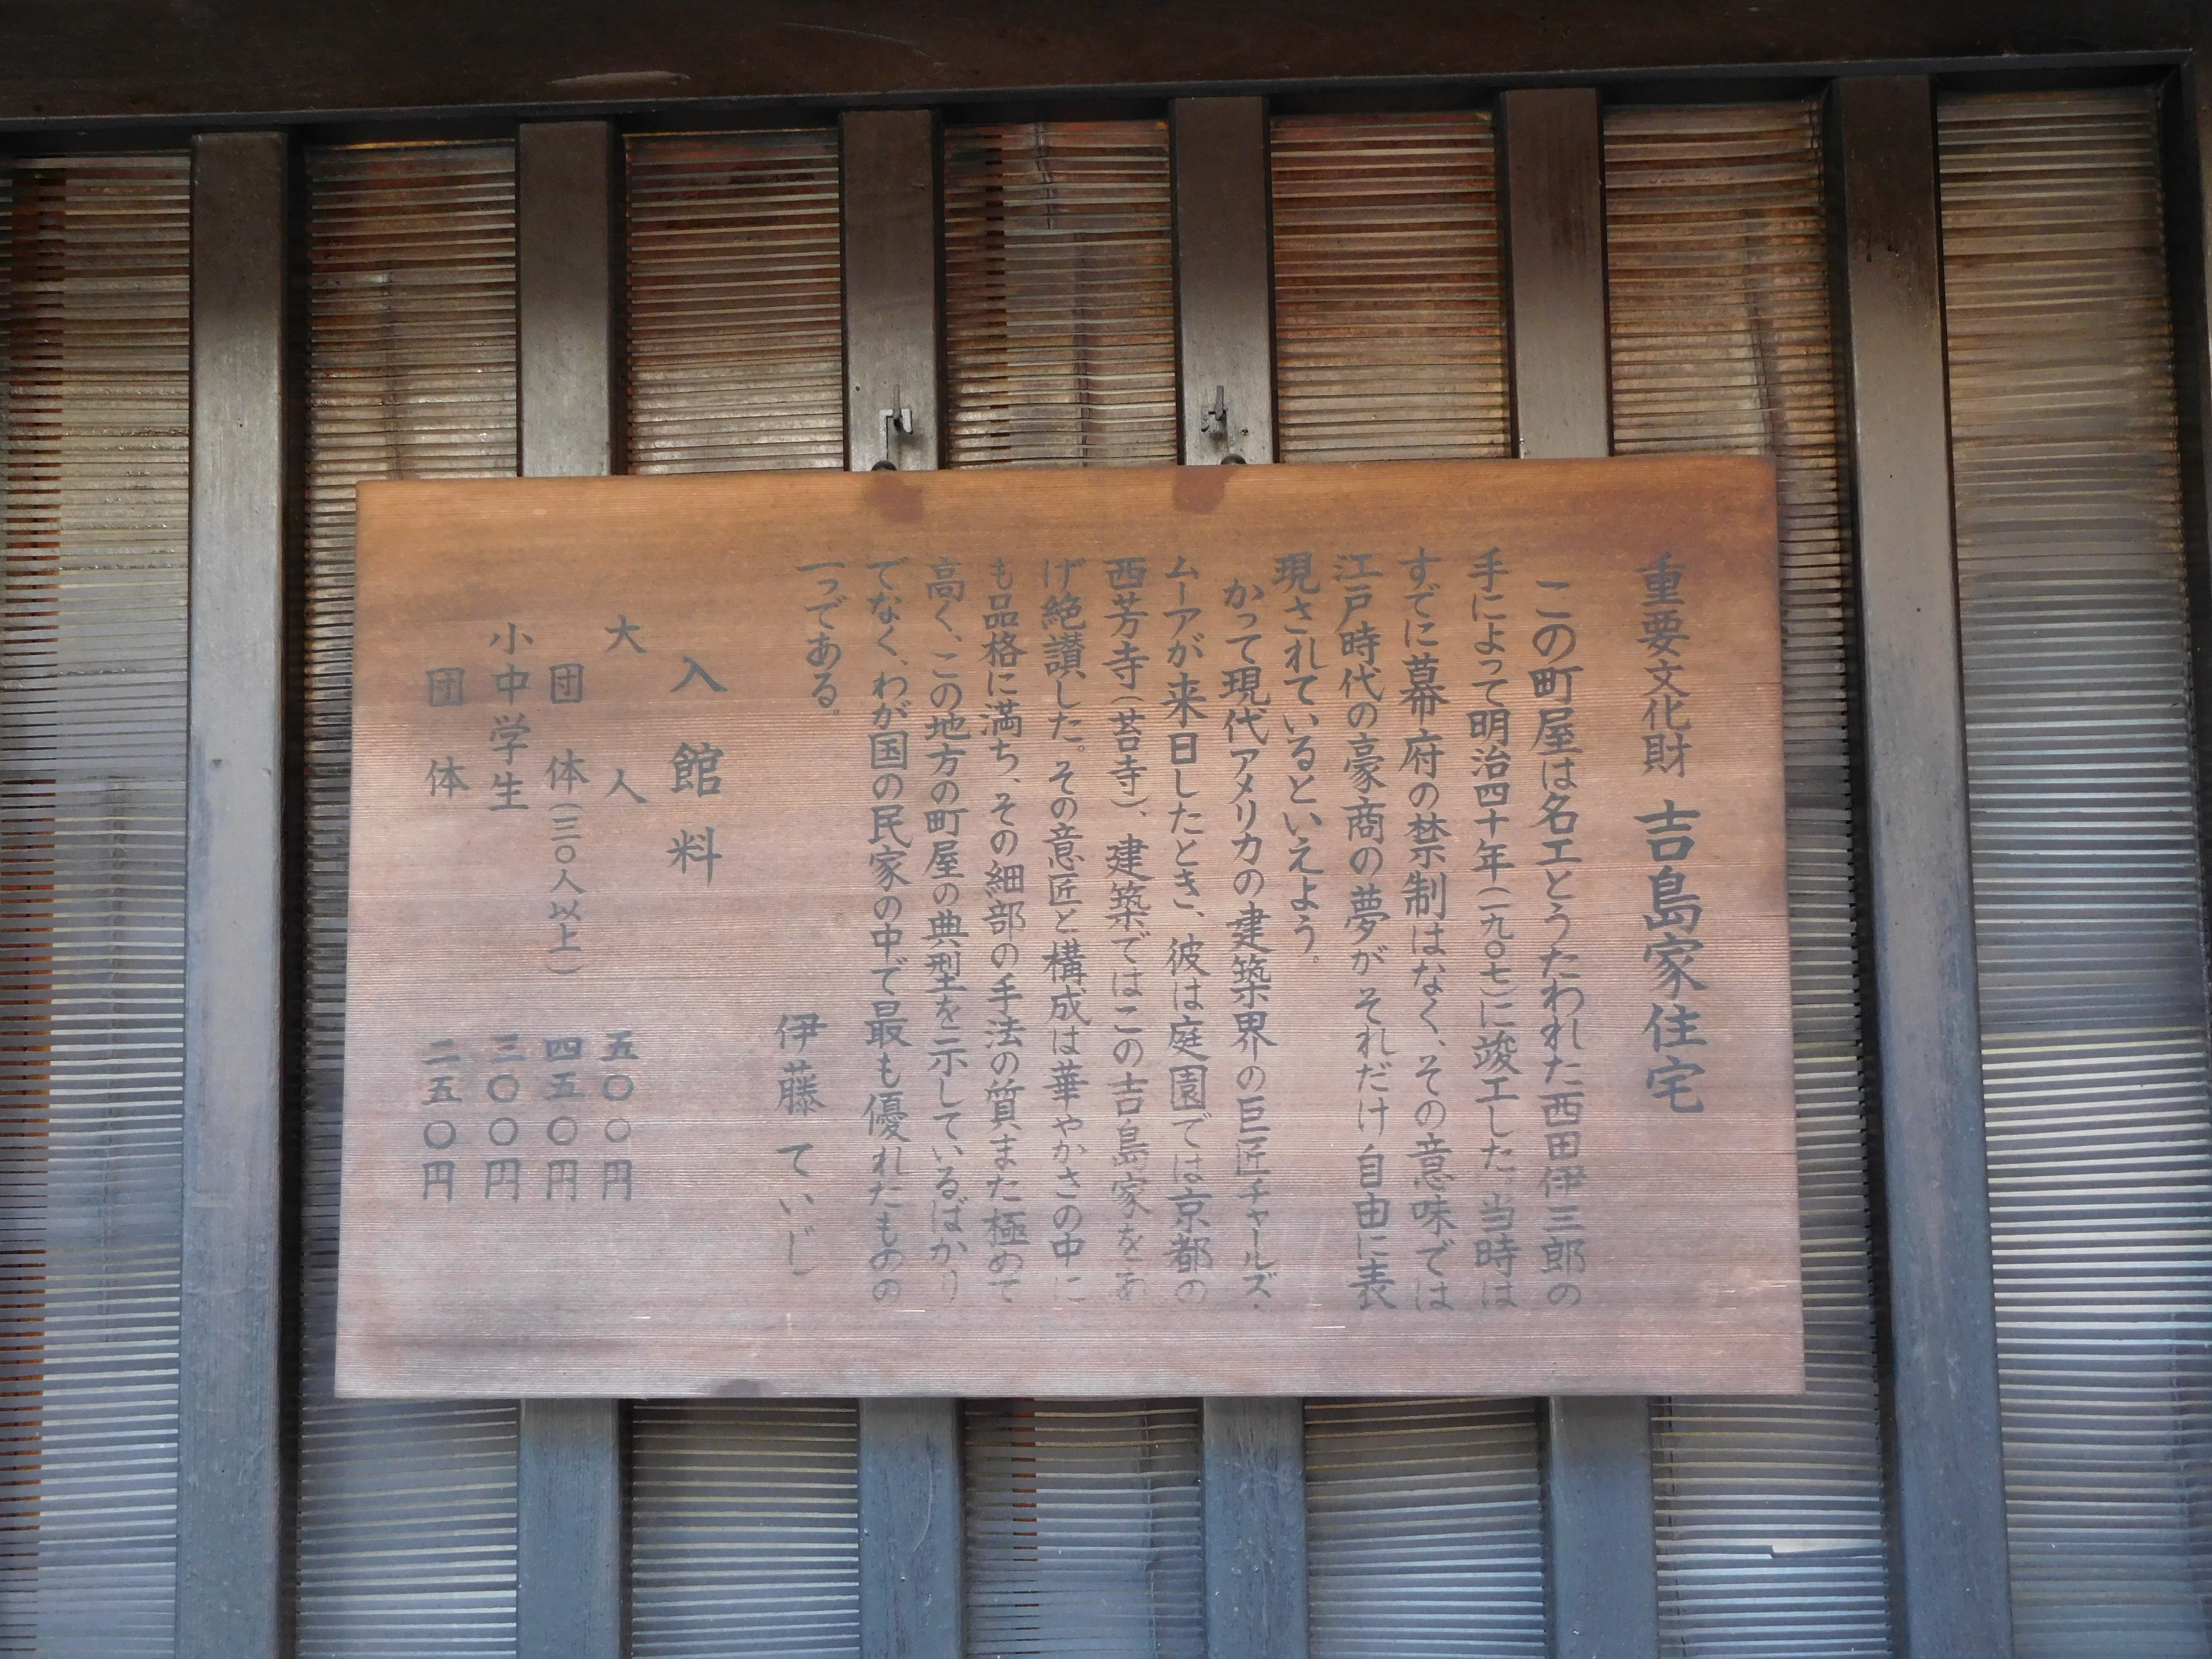 重要文化財 吉島家住宅
この町屋は名工とうたわれた西田伊三郎の
手によって明治四十年(一九〇七)に竣工した。当時は
すでに幕府の禁制はなく、その意味では
江戸時代の豪商の夢がそれだけ自由に表
現されているといえよう。
かって現代アメリカの建築界の巨匠チャールズ・
ムーアが来日したとき、彼は庭園では京都の
西芳寺(苔寺)、建築ではこの吉島家をあ
げ絶讃した。その意匠と構成は華やかさの中に
も品格に満ち、その細部の手法の質また極めて
高く、この地方の町屋の典型を示しているばかり
でなく、わが国の民家の中で最も優れたものの
一つである。
伊藤ていじ
入館料
大人 五〇〇円
団体(三〇人以上) 四五〇円
小中学生 三〇〇円
団体 二五〇円